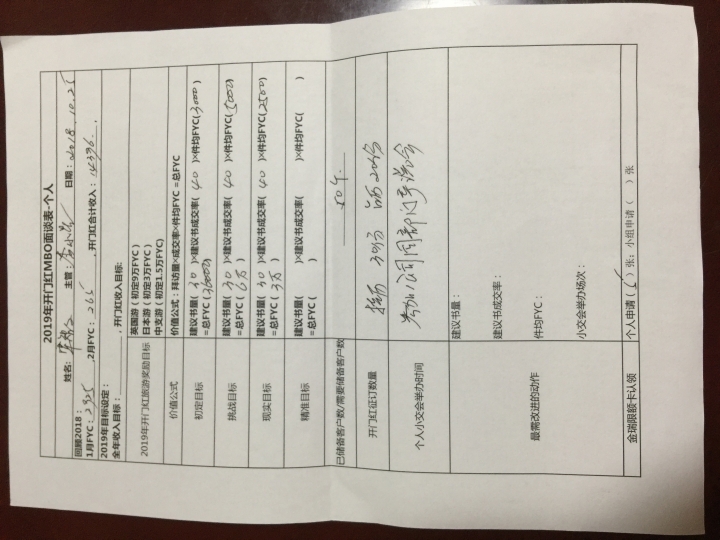 2019年开门红MBO面谈表-个人
姓名： 主管： 日期：2018.10.25
回顾2018：
1月FYC：2925 ,2月FYC：265 ,开门红合计收入：14396 ,
2019年目标设定：
全年收入目标： ,开门红收入目标:
2019年开门红旅游奖励目标
英国游（初定9万FYC）
日本游（初定3万FYC）
中支游（初定1.5万FYC）
价值公式
价值公式：拜访量×成交率×件均FYC =总FYC
初定目标
建议书量( 30 )×建议书成交率( 40 )×件均FYC(3000 )
=总FYC(36000)
挑战目标
建议书量( 30 )×建议书成交率( 40 )×件均FYC(5000)
=总FYC(6万)
现实目标
建议书量( 30 )×建议书成交率( 40 )×件均FYC(2500)
=总FYC(3万)
精准目标
建议书量( )×建议书成交率( )×件均FYC( )
=总FYC( )
已储备客户数/需要储备客户数
50个
开门红征订数量
挂历 30份 台历 20份
个人小交会举办时间
参加公司同部门产说会
最需改进的动作
建议书量：
建议书成交率：
件均FYC：
小交会举办场次：
金瑞限额卡认领
个人申请（5）张；小组申请（ ）张